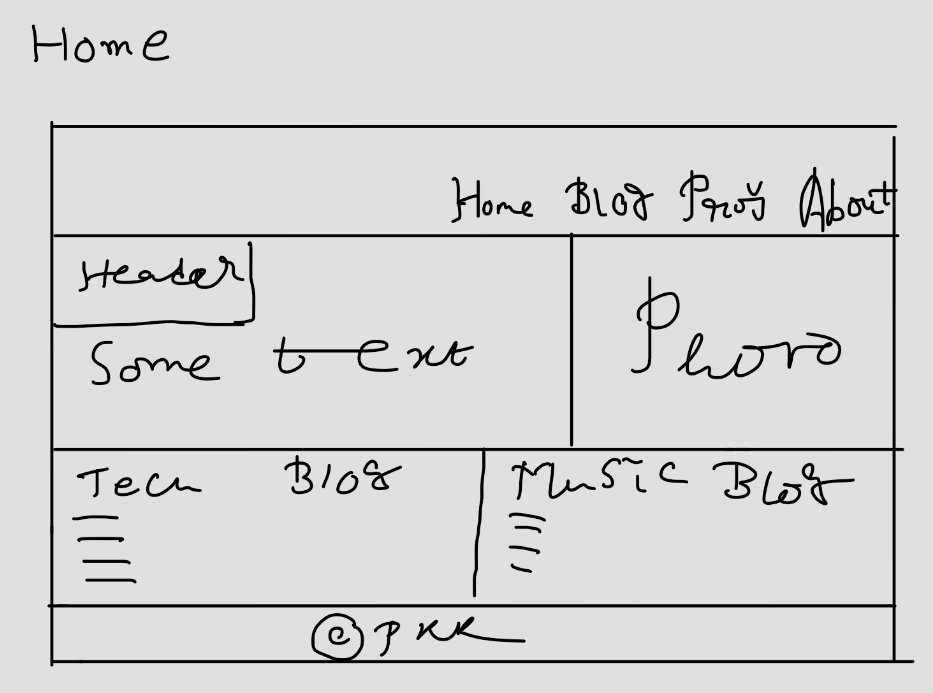 Home
Home Blog Proj About
Header
Some text
Photo
Tech Blog
Music Blog
© PKK